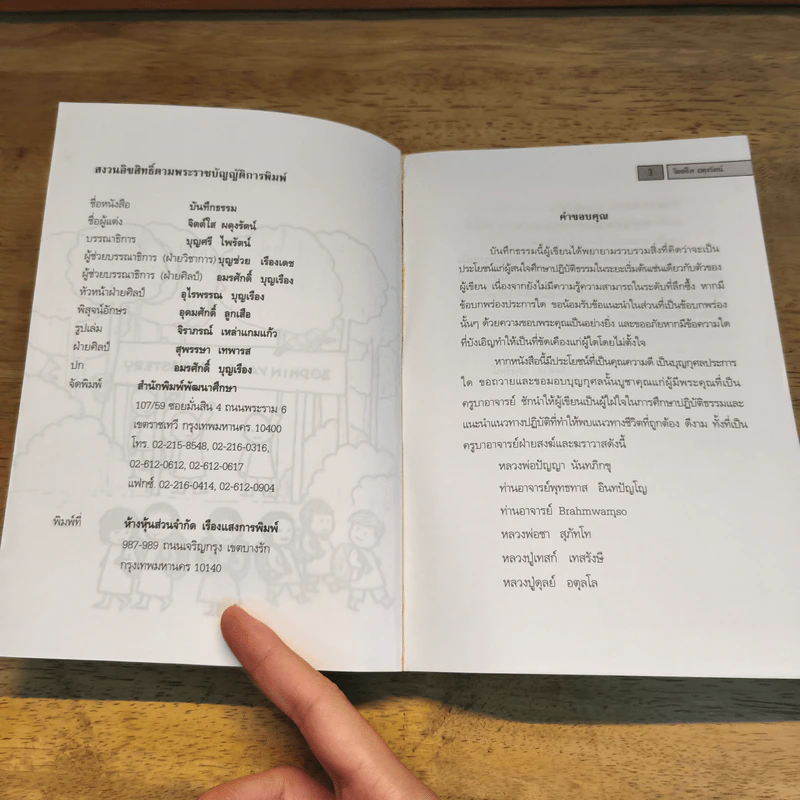 สงวนลิขสิทธิ์ตามพระราชบัญญัติการพิมพ์
ชื่อหนังสือ บันทึกธรรม
ชื่อผู้แต่ง จิตต์ใส ผดุงรัตน์
บรรณาธิการ บุญศรี ไพรัตน์
ผู้ช่วยบรรณาธิการ (ฝ่ายวิชาการ) บุญช่วย เรืองเดช
ผู้ช่วยบรรณาธิการ (ฝ่ายศิลป์) อมรศักดิ์ บุญเรือง
หัวหน้าฝ่ายศิลป์ อุไรพรรณ บุญเรือง
พิสูจน์อักษร อุดมศักดิ์ ลูกเสือ
รูปเล่ม จิราภรณ์ เหล่าแกมแก้ว
ฝ่ายศิลป์ สุพรรษา เทพารส
ปก อมรศักดิ์ บุญเรือง
จัดพิมพ์ สำนักพิมพ์พัฒนาศึกษา
107/59 ซอยมั่นสิน 4 ถนนพระราม 6
เขตราชเทวี กรุงเทพมหานคร 10400
โทร. 02-215-8548, 02-216-0316,
02-612-0612, 02-612-0617
แฟกซ์. 02-216-0414, 02-612-0904
พิมพ์ที่ ห้างหุ้นส่วนจำกัด เรืองแสงการพิมพ์
987-989 ถนนเจริญกรุง เขตบางรัก
กรุงเทพมหานคร 10140
3 จิตต์ใส ผดุงรัตน์
คำขอบคุณ
บันทึกธรรมนี้ผู้เขียนได้พยายามรวบรวมสิ่งที่คิดว่าจะเป็น
ประโยชน์แก่ผู้สนใจศึกษาปฏิบัติธรรมในระยะเริ่มต้นเช่นเดียวกับตัวของ
ผู้เขียน เนื่องจากยังไม่มีความรู้ความสามารถในระดับที่ลึกซึ้ง หากมี
ข้อบกพร่องประการใด ขอน้อมรับข้อแนะนำในส่วนที่เป็นข้อบกพร่อง
นั้นๆ ด้วยความขอบพระคุณเป็นอย่างยิ่ง และขออภัยหากมีข้อความใด
ที่บังเอิญทำให้เป็นที่ขัดเคืองแก่ผู้ใดโดยไม่ตั้งใจ
หากหนังสือนี้มีประโยชน์ที่เป็นคุณความดี เป็นบุญกุศลประการ
ใด ขอถวายและขอมอบบุญกุศลนั้นบูชาคุณแก่ผู้มีพระคุณที่เป็น
ครูบาอาจารย์ ชักนำให้ผู้เขียนเป็นผู้ใฝ่ใจในการศึกษาปฏิบัติธรรมและ
แนะนำแนวทางปฏิบัติที่ทำให้พบแนวทางชีวิตที่ถูกต้อง ดีงาม ทั้งที่เป็น
ครูบาอาจารย์ฝ่ายสงฆ์และฆราวาสดังนี้
หลวงพ่อปัญญา นันทภิกขุ
ท่านอาจารย์พุทธทาส อินทปัญโญ
ท่านอาจารย์ Brahmwaṃso
หลวงพ่อชา สุภัทโท
หลวงปู่เทสก์ เทสรังษี
หลวงปู่ดุลย์ อตุลโล